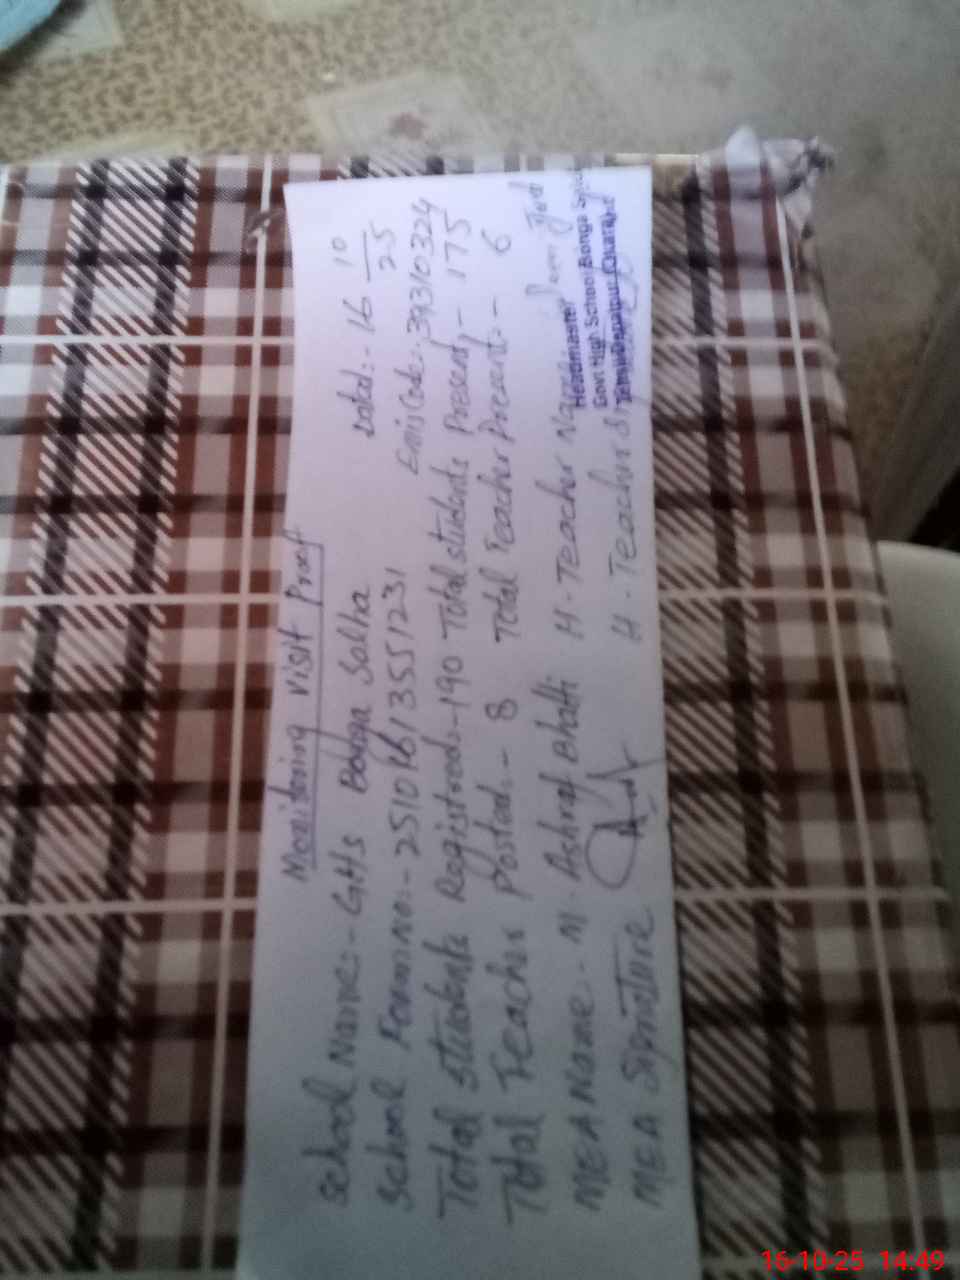 Monitoring visit Proof
School Name:- GHS Bonga Salha Dated:- 16 10/25
School Form no:- 25101613551231 Emis Code:- 39310324
Total students Registered:- 190 Total students Present - 175
Total Teacher Posted:- 8 Total Teacher Present:- 6
MEA Name:- M. Ashraf Bhatti H-Teacher
MEA Signature H-Teacher
Headmaster
Govt High School Bonga
16-10-25 14:49